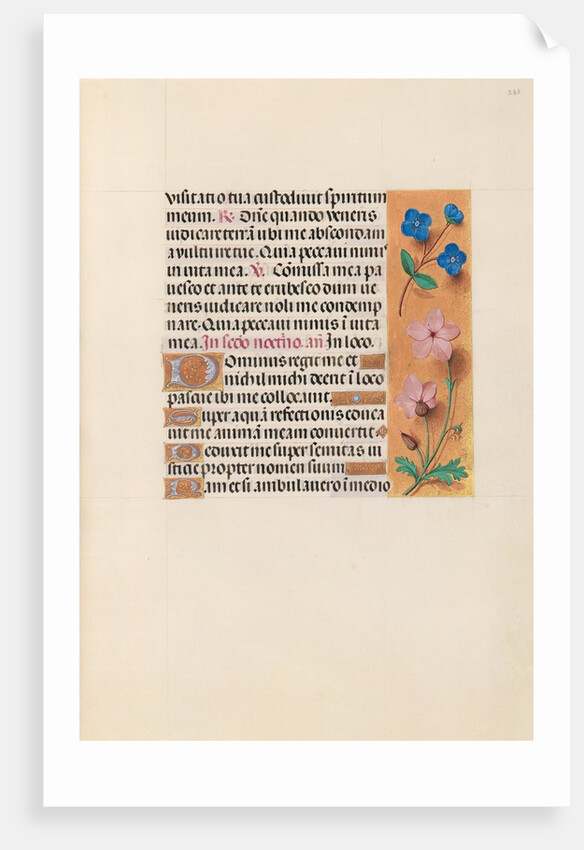 243
visitatio tua custodivit spiritum
meum. R. Dñe quando veneris
iudicare terrã ubi me abscondam
a vultu ire tue. Quia peccavi nimis
in vita mea. V. Cõmissa mea pa
vesco et ante te erubesco dum ve
neris iudicare noli me condemp
nare. Quia peccavi nimis ĩ vita
mea. In sc̃do noct̃no. añ In loco.
Dominus regit me et
nichil michi deerit ĩ loco
pascue ibi me collocavit.
Super aquã refectionis educa
vit me animã meam convertit
Deduxit me super semitas iu
sticie propter nomen suum
Nam et si ambulavero ĩ medio